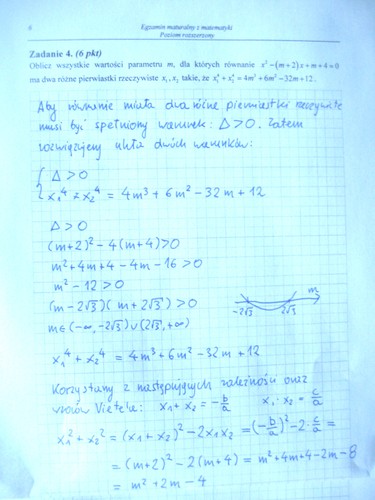 6
Egzamin maturalny z matematyki
Poziom rozszerzony
Zadanie 4. (6 pkt)
Oblicz wszystkie wartości parametru m, dla których równanie x² − (m+2)x + m + 4 = 0
ma dwa różne pierwiastki rzeczywiste x₁, x₂ takie, że x₁⁴ + x₂⁴ = 4m³ + 6m² − 32m + 12.
Aby równanie miało dwa różne pierwiastki rzeczywiste
musi być spełniony warunek: Δ > 0. Zatem
rozwiązujemy układ dwóch warunków:
Δ > 0
x₁⁴ + x₂⁴ = 4m³ + 6m² − 32m + 12
Δ > 0
(m+2)² − 4(m+4) > 0
m² + 4m + 4 − 4m − 16 > 0
m² − 12 > 0
(m − 2√3)(m + 2√3) > 0
m
−2√3 2√3
m ∈ (−∞, −2√3) ∪ (2√3, +∞)
x₁⁴ + x₂⁴ = 4m³ + 6m² − 32m + 12
Korzystamy z następujących zależności oraz
wzorów Viete'a: x₁ + x₂ = −b/a x₁ · x₂ = c/a
x₁² + x₂² = (x₁ + x₂)² − 2x₁x₂ = (−b/a)² − 2 · c/a =
= (m+2)² − 2(m+4) = m² + 4m + 4 − 2m − 8
= m² + 2m − 4